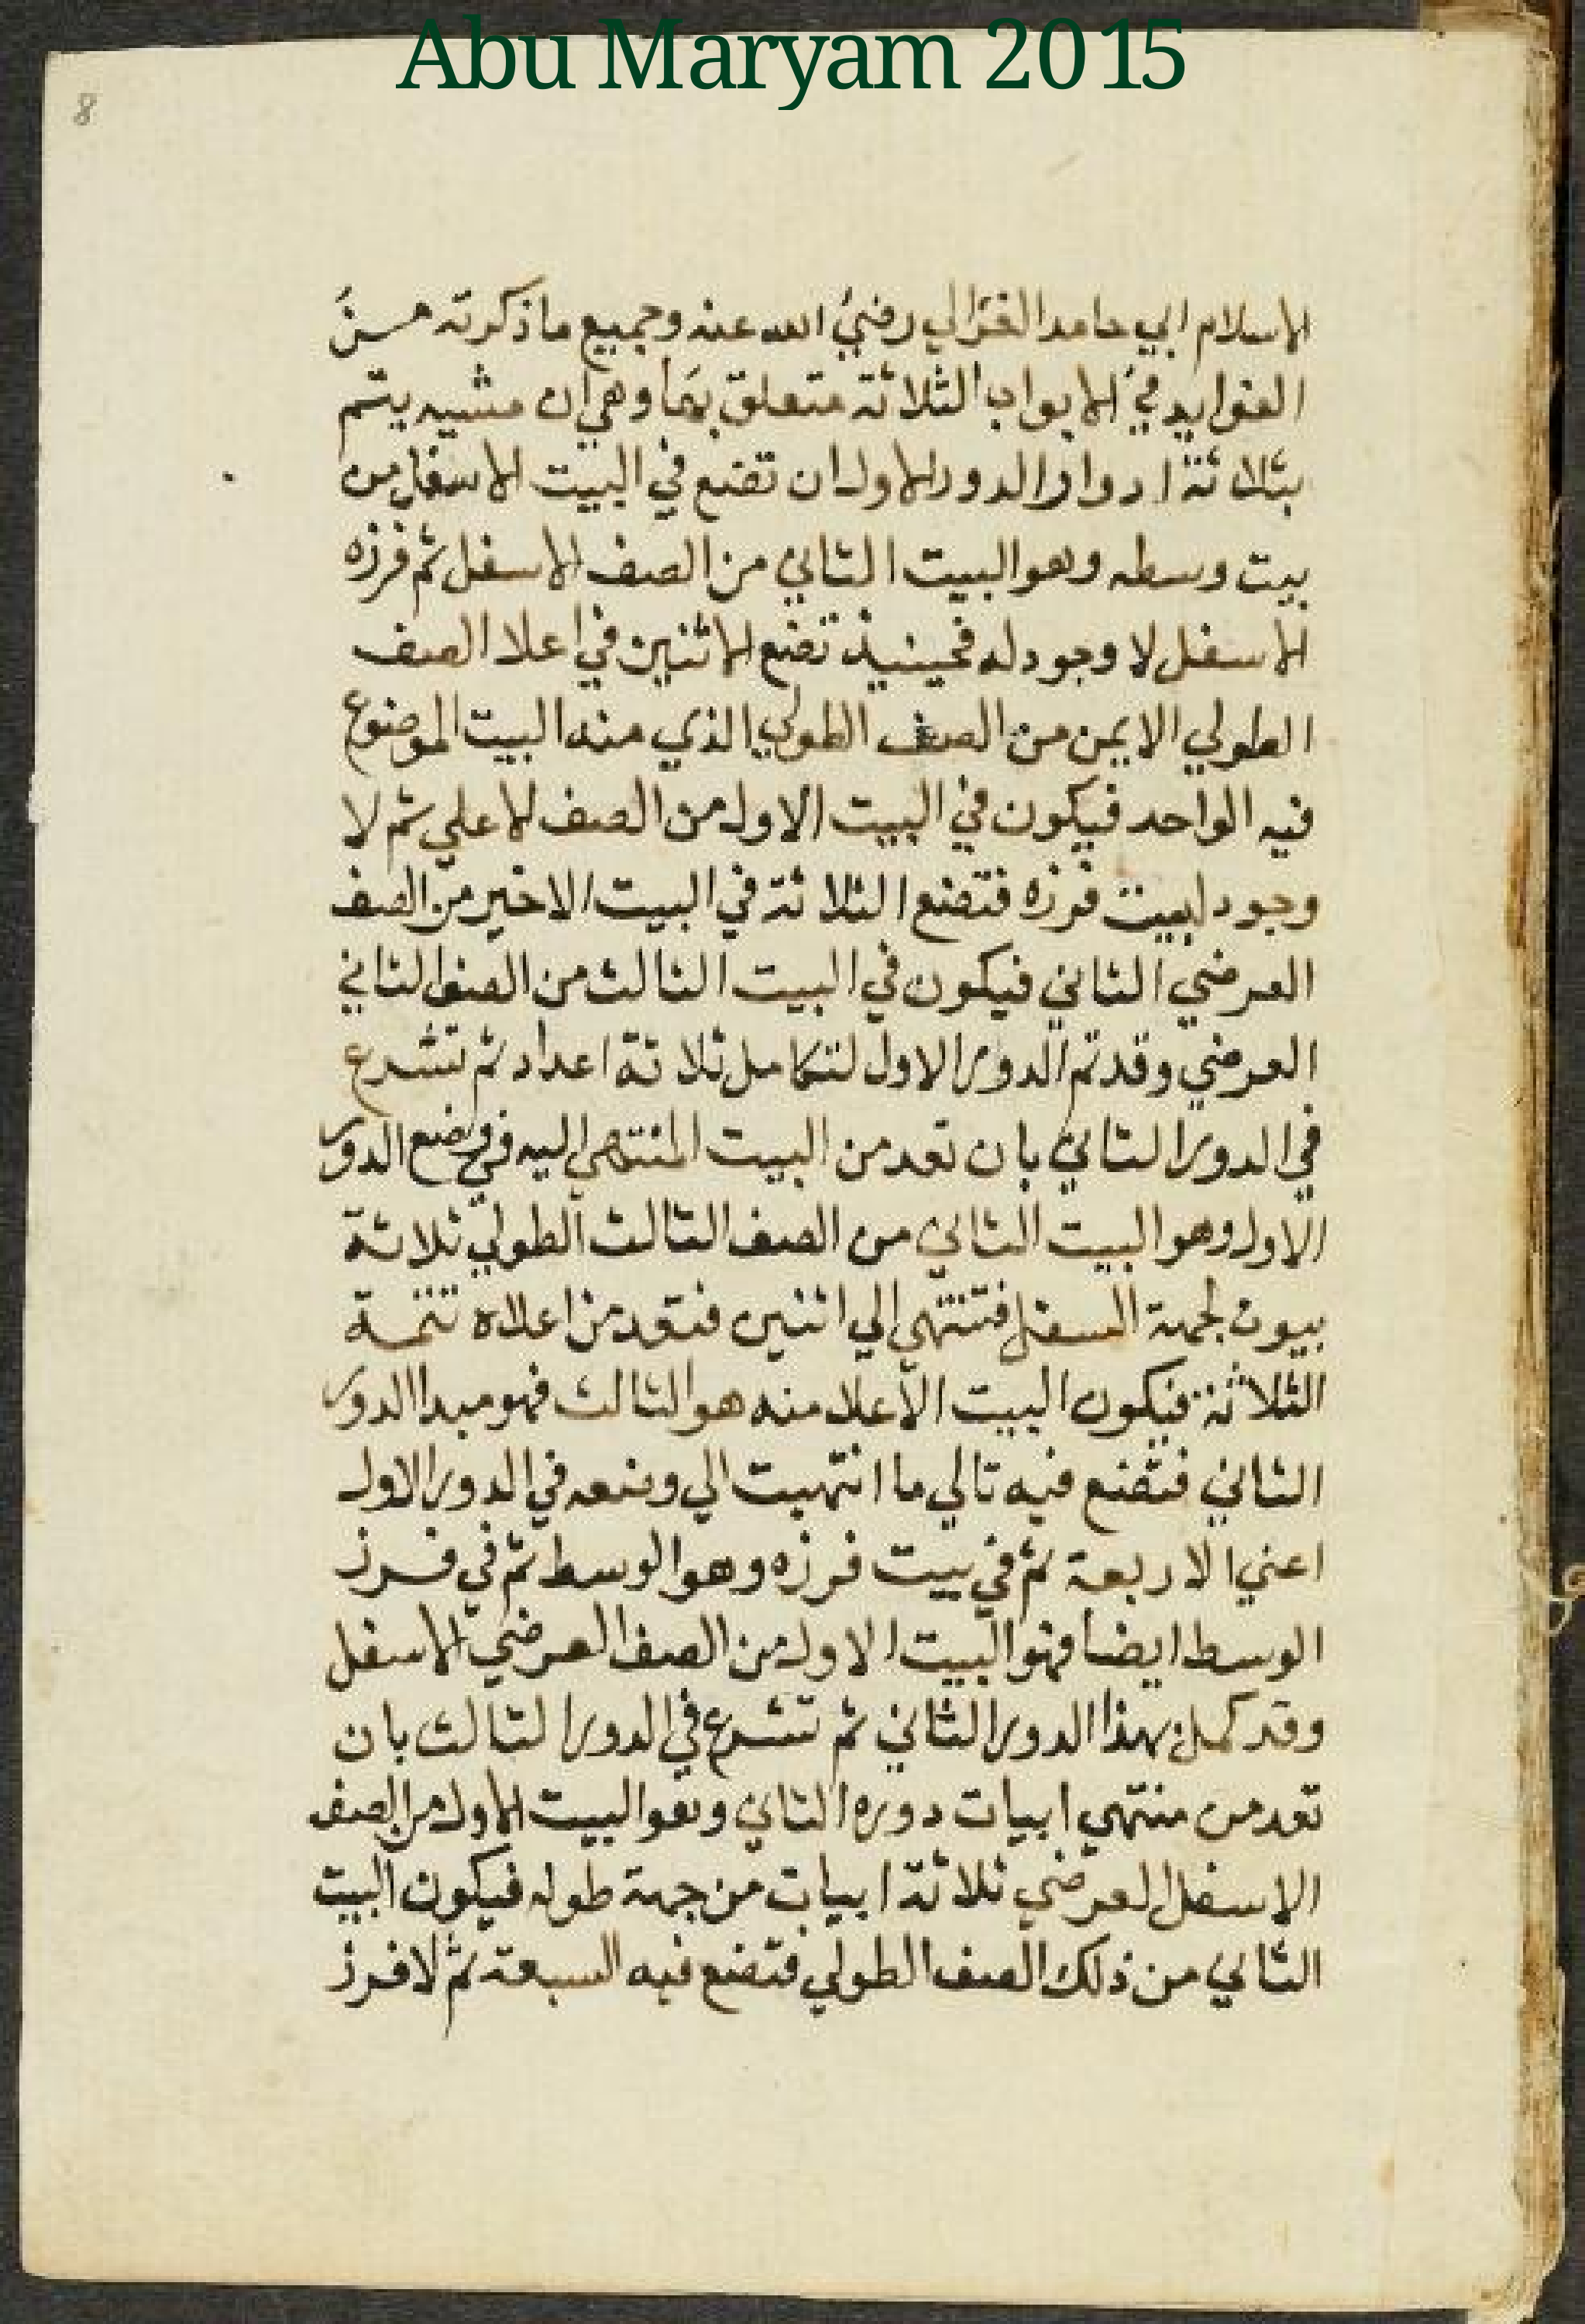 Abu Maryam 2015
8
الاسلام ابي حامد الغزالي رضي الله عنه وجميع ما ذكرته من
الفوايد في الابواب الثلاثة متعلق بها وهي ان مشيه يتم
بثلاثة ادوار الدور الاول ان تضع في البيت الاسفل من
بيت وسطه وهو البيت الثاني من الصف الاسفل ثم فرزه
الاسفل لا وجود له فحينيذ تضع الاثنين في اعلا الصف
الطولي الايمن من الصف الطولي الذي منه البيت الموضوع
فيه الواحد فيكون في البيت الاول من الصف الاعلي ثم لا
وجود لبيت فرزه فتضع الثلاثة في البيت الاخير من الصف
العرضي الثاني فيكون في البيت الثالث من الصف الثاني
العرضي وقد تم الدور الاول لتكامل ثلاثة اعداد ثم تشرع
في الدور الثاني بان تعد من البيت المنتهي اليه في وضع الدور
الاول وهو البيت الثاني من الصف الثالث الطولي ثلاثة
بيوت لجهة السفل فتنتهي الي اثنين فتعد من اعلاه تتمة
الثلاثة فيكون البيت الاعلا منه هو الثالث فهو مبدا الدور
الثاني فتضع فيه تالي ما انتهيت الي وضعه في الدور الاول
اعني الاربعة ثم في بيت فرزه وهو الوسط ثم في فرز
الوسط ايضا فهو البيت الاول من الصف العرضي الاسفل
وقد كمل بهذا الدور الثاني ثم تشرع في الدور الثالث بان
تعد من منتهي ابيات دوره الثاني وهو البيت الاول من الصف
الاسفل العرضي ثلاثة ابيات من جهة طوله فيكون البيت
الثاني من ذلك الصف الطولي فتضع فيه السبعة ثم لا فرز